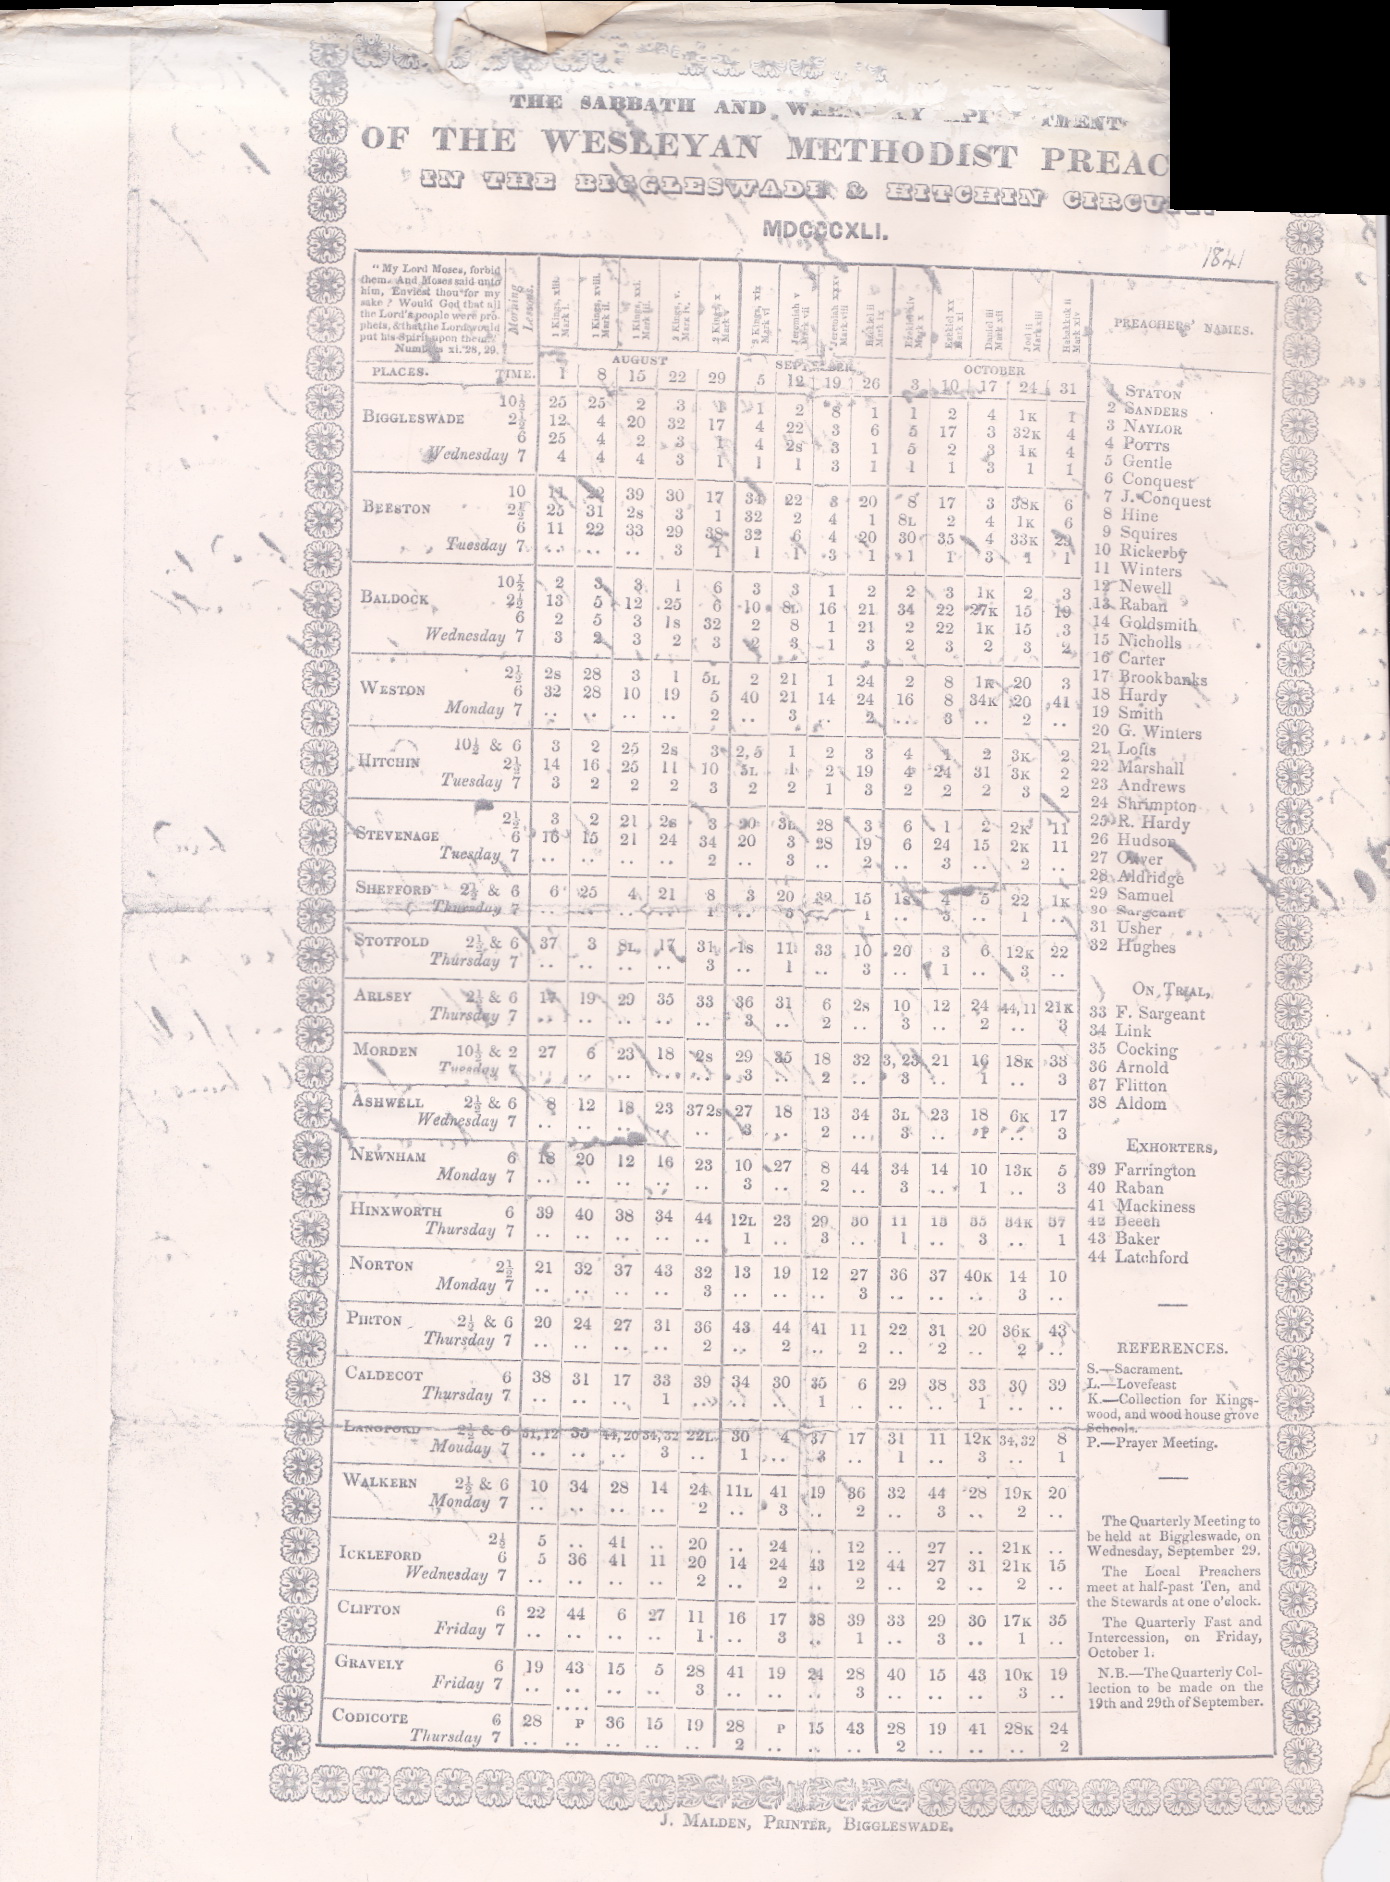 THE SABBATH AND
OF THE WESLEYAN METHODIST PREAC
IN THE BIGGLESWADE & HITCHIN CIRCUIT
MDCCCXLI.
1841
"My Lord Moses, forbid
them. And Moses said unto
him, Enviest thou for my
sake? Would God that all
the Lord's people were pro-
phets, & that the Lord would
put his Spirit upon them."
Numbers xi. 28, 29.
Morning Lessons.
1 Kings, xiii. Mark i.
1 Kings, xviii. Mark ii.
1 Kings, xxi. Mark iii.
2 Kings, v. Mark iv.
2 Kings x Mark v
2 Kings, xix Mark vi
Jeremiah v Mark vii
Jeremiah xxxv Mark viii
Ezekiel ii Mark ix
Ezekiel xiv Mark x
Ezekiel xx Mark xi
Daniel iii Mark xii
Joel ii Mark xiii
Habakkuk ii Mark xiv
AUGUST SEPTEMBER OCTOBER
PLACES. TIME. 1 8 15 22 29 5 12 19 26 3 10 17 24 31
10½ 25 25 2 3 1 1 2 8 1 1 2 4 1K 1
BIGGLESWADE 2½ 12 4 20 32 17 4 22 3 6 5 17 3 32K 4
6 25 4 2 3 1 4 2s 3 1 5 2 3 1K 4
Wednesday 7 4 4 4 3 1 1 1 3 1 1 1 3 1 1
10 11 22 39 30 17 34 22 8 20 8 17 3 38K 6
BEESTON 2½ 25 31 2s 3 1 32 2 4 1 8L 2 4 1K 6
6 11 22 33 29 38 32 6 4 20 30 35 4 33K 29
Tuesday 7 .. .. .. 3 1 1 1 3 1 1 1 3 1 1
10½ 2 3 3 1 6 3 3 1 2 2 3 1K 2 3
BALDOCK 2½ 13 5 12 25 6 10 8L 16 21 34 22 27K 15 19
6 2 5 3 1s 32 2 8 1 21 2 22 1K 15 3
Wednesday 7 3 2 3 2 3 2 3 1 3 2 3 2 3 2
2½ 2s 28 3 1 5L 2 21 1 24 2 8 1K 20 3
WESTON 6 32 28 10 19 5 40 21 14 24 16 8 34K 20 41
Monday 7 .. .. .. .. 2 .. 3 .. 2 .. 3 .. 2 ..
10½ & 6 3 2 25 2s 3 2,5 1 2 3 4 1 2 3K 2
HITCHIN 2½ 14 16 25 11 10 5L 1 2 19 4 24 31 3K 2
Tuesday 7 3 2 2 2 3 2 2 1 3 2 2 2 3 2
2½ 3 2 21 2s 3 20 3L 28 3 6 1 2 2K 11
STEVENAGE 6 16 15 21 24 34 20 3 28 19 6 24 15 2K 11
Tuesday 7 .. .. .. .. 2 .. 3 .. 2 .. 3 .. 2 ..
SHEFFORD 2½ & 6 6 25 4 21 8 3 20 15 1s 4 5 22 1K
Thursday 7 .. .. .. .. 1 .. 3 .. 1 .. 3 .. 1 ..
STOTFOLD 2½ & 6 37 3 8L 17 31 1s 11 33 10 20 3 6 12K 22
Thursday 7 .. .. .. .. 3 .. 1 .. 3 .. 1 .. 3 ..
ARLSEY 2½ & 6 17 19 29 35 33 36 31 6 2s 10 12 24 44,11 21K
Thursday 7 .. .. .. .. .. 3 .. 2 .. 3 .. 2 .. 3
MORDEN 10½ & 2 27 6 23 18 2s 29 35 18 32 3,23 21 16 18K 33
Tuesday 7 .. .. .. .. .. 3 .. 2 .. 3 .. 1 .. 3
ASHWELL 2½ & 6 8 12 18 23 37 2s 27 18 13 34 3L 23 18 6K 17
Wednesday 7 .. .. .. .. .. 3 .. 2 .. 3 .. 1 .. 3
NEWNHAM 6 18 20 12 16 23 10 27 8 44 34 14 10 13K 5
Monday 7 .. .. .. .. .. 3 .. 2 .. 3 .. 1 .. 3
HINXWORTH 6 39 40 38 34 44 12L 23 29 30 11 13 35 34K 37
Thursday 7 .. .. .. .. .. 1 .. 3 .. 1 .. 3 .. 1
NORTON 2½ 21 32 37 43 32 13 19 12 27 36 37 40K 14 10
Monday 7 .. .. .. .. 3 .. .. .. 3 .. .. .. 3 ..
PIRTON 2½ & 6 20 24 27 31 36 43 44 41 11 22 31 20 36K 43
Thursday 7 .. .. .. .. 2 .. 2 .. 2 .. 2 .. 2 ..
CALDECOT 6 38 31 17 33 39 34 30 35 6 29 38 33 30 39
Thursday 7 .. .. .. 1 .. .. .. 1 .. .. .. 1 .. ..
LANGFORD 2½ & 6 31,12 35 44,20 34,32 22L 30 4 37 17 31 11 12K 34,32 8
Monday 7 .. .. .. 3 .. 1 .. 3 .. 1 .. 3 .. 1
WALKERN 2½ & 6 10 34 28 14 24 11L 41 19 36 32 44 28 19K 20
Monday 7 .. .. .. .. 2 .. 3 .. 2 .. 3 .. 2 ..
2½ 5 .. 41 .. 20 .. 24 .. 12 .. 27 .. 21K ..
ICKLEFORD 6 5 36 41 11 20 14 24 43 12 44 27 31 21K 15
Wednesday 7 .. .. .. .. 2 .. 2 .. 2 .. 2 .. 2 ..
CLIFTON 6 22 44 6 27 11 16 17 38 39 33 29 30 17K 35
Friday 7 .. .. .. .. 1 .. 3 .. 1 .. 3 .. 1 ..
GRAVELY 6 19 43 15 5 28 41 19 24 28 40 15 43 10K 19
Friday 7 .. .. .. .. 3 .. .. .. 3 .. .. .. 3 ..
CODICOTE 6 28 P 36 15 19 28 P 15 43 28 19 41 28K 24
Thursday 7 .. .. .. .. .. 2 .. .. .. 2 .. .. .. 2
PREACHERS' NAMES.
1 STATON
2 SANDERS
3 NAYLOR
4 POTTS
5 Gentle
6 Conquest
7 J. Conquest
8 Hine
9 Squires
10 Rickerby
11 Winters
12 Newell
13 Raban
14 Goldsmith
15 Nicholls
16 Carter
17 Brookbanks
18 Hardy
19 Smith
20 G. Winters
21 Lofts
22 Marshall
23 Andrews
24 Shrimpton
25 R. Hardy
26 Hudson
27 Oliver
28 Aldridge
29 Samuel
30 Sargeant
31 Usher
32 Hughes
ON TRIAL,
33 F. Sargeant
34 Link
35 Cocking
36 Arnold
37 Flitton
38 Aldom
EXHORTERS,
39 Farrington
40 Raban
41 Mackiness
42 Beech
43 Baker
44 Latchford
REFERENCES.
S.—Sacrament.
L.—Lovefeast
K.—Collection for Kings-
wood, and wood house grove
Schools.
P.—Prayer Meeting.
The Quarterly Meeting to
be held at Biggleswade, on
Wednesday, September 29.
The Local Preachers
meet at half-past Ten, and
the Stewards at one o'clock.
The Quarterly Fast and
Intercession, on Friday,
October 1.
N.B.—The Quarterly Col-
lection to be made on the
19th and 29th of September.
J. MALDEN, PRINTER, BIGGLESWADE.